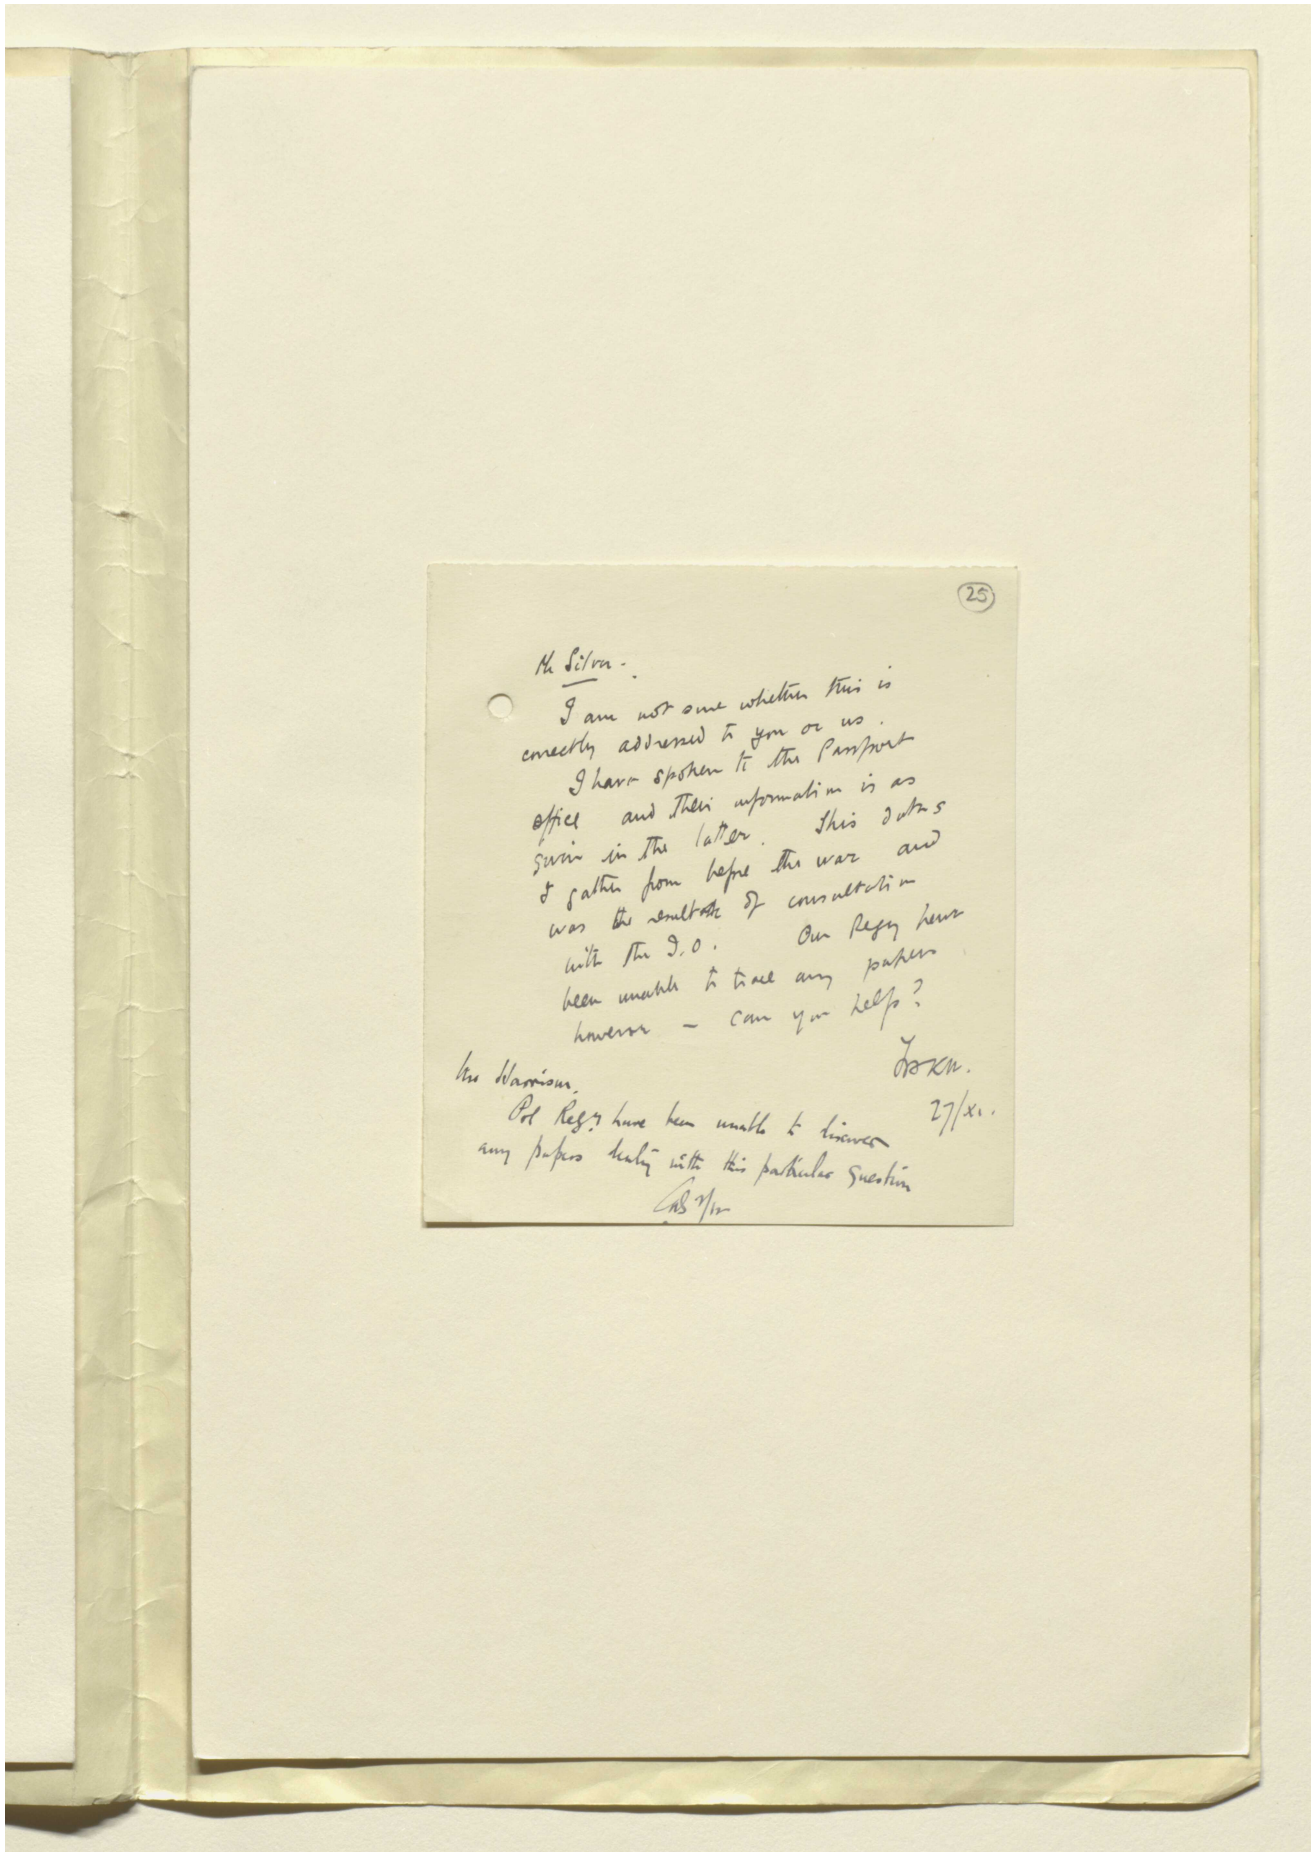 25
Mr Silver.
I am not sure whether this is
correctly addressed to you or us.
I have spoken to the Passport
office and their information is as
given in the latter. This dates
I gather from before the war and
was the result of consultation
with the I.O. Our Regy have
been unable to trace any papers
however – can you help?
27/xi.
Mrs Harrison.
Pol Regy have been unable to discover
any papers dealing with this particular question